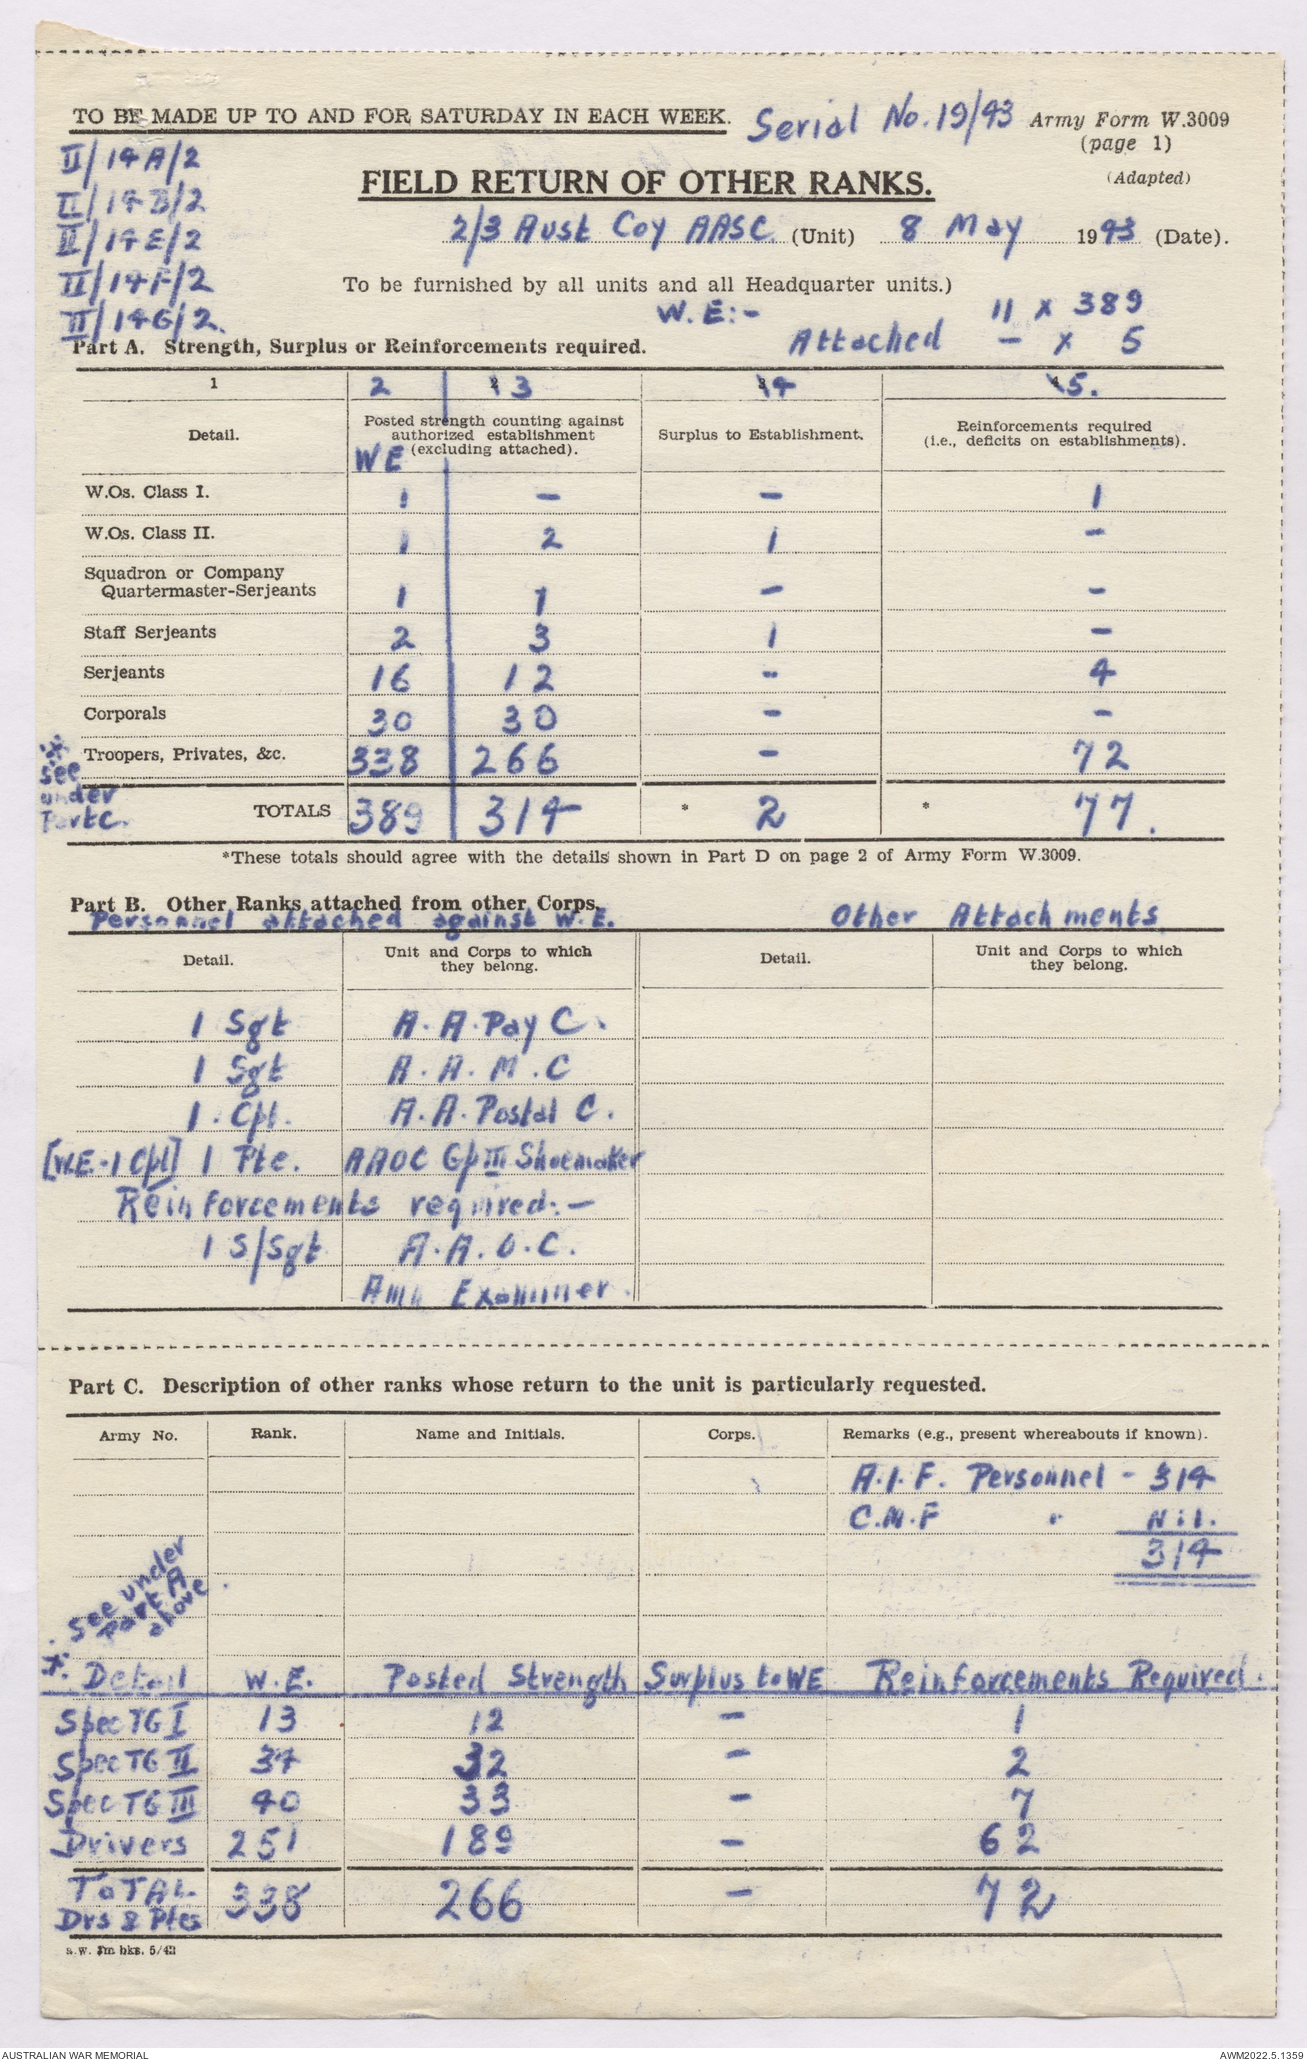 TO BE MADE UP TO AND FOR SATURDAY IN EACH WEEK. Serial No. 19/43 Army Form W.3009
(page 1)
(Adapted)
II/14A/2
II/14B/2
II/14E/2
II/14F/2
II/14G/2.
FIELD RETURN OF OTHER RANKS.
2/3 Aust Coy AASC. (Unit) 8 May 1943 (Date).
To be furnished by all units and all Headquarter units.)
W.E:- 11 x 389
Attached - x 5
Part A. Strength, Surplus or Reinforcements required.
1 2 2 3 3 4 4 5.
Detail. WE Posted strength counting against authorized establishment (excluding attached). Surplus to Establishment. Reinforcements required (i.e., deficits on establishments).
W.Os. Class I. 1 - - 1
W.Os. Class II. 1 2 1 -
Squadron or Company
Quartermaster-Serjeants 1 1 - -
Staff Serjeants 2 3 1 -
Serjeants 16 12 - 4
Corporals 30 30 - -
Troopers, Privates, &c. 338 266 - 72
* see under Part C.
TOTALS 389 314 * 2 * 77.
*These totals should agree with the details shown in Part D on page 2 of Army Form W.3009.
Part B. Other Ranks attached from other Corps.
Personnel attached against W.E. Other Attachments
Detail. Unit and Corps to which they belong. Detail. Unit and Corps to which they belong.
1 Sgt A.A. Pay C.
1 Sgt A.A.M.C
1. Cpl. A.A. Postal C.
[W.E.-1 Cpl] 1 Pte. AAOC Gp III Shoemaker
Reinforcements required:-
1 S/Sgt A.A.O.C.
Amn Examiner.
Part C. Description of other ranks whose return to the unit is particularly requested.
Army No. Rank. Name and Initials. Corps. Remarks (e.g., present whereabouts if known).
A.I.F. Personnel - 314
C.M.F " Nil.
314
See under part A above.
*. Detail W.E. Posted Strength Surplus to WE Reinforcements Required.
Spec TG I 13 12 - 1
Spec TG II 34 32 - 2
Spec TG III 40 33 - 7
Drivers 251 189 - 62
TOTAL
Drs & Ptes 338 266 - 72
s.w. 1m bks. 5/42
AUSTRALIAN WAR MEMORIAL AWM2022.5.1359